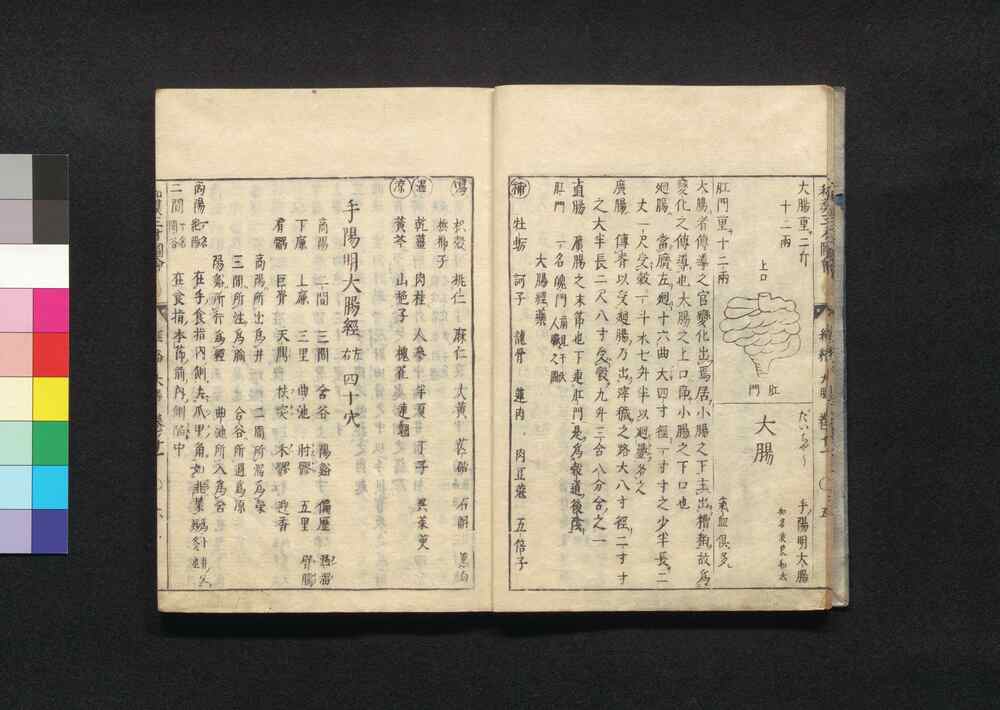 大腸
だいちやう
手陽明大腸
大腸重二斤
十二兩
上口
肛
門
氣血俱多
肛門重十二兩
大腸者傳導之官變化出焉居小腸之下主出糟粕故爲
變化之傳導也大腸之上口即小腸之下口也
廻腸 當臍左廻十六曲大四寸徑一寸寸之少半長二
丈一尺受穀一斗水七升半以廻疊名之
廣腸 傳脊以受廻腸乃出滓穢之路大八寸徑二寸寸
之大半長二尺八寸受穀九升三合八分合之一
直腸 廣腸之末節也下連肛門是爲穀道後陰
肛門 一名魄門
大腸經藥
補 牡蛎 訶子 龍骨 蓮肉 肉豆蔲 五倍子
瀉 枳殼 桃仁 麻仁 大黃 芒硝 石斛 葱白
檳榔子
温 乾薑 肉桂 人參 半夏 丁子 吳茱萸
涼 黃芩 山梔子 槐花 連翹
手陽明大腸經 左右 四十穴
商陽 二間 三間 合谷 陽谿 偏歷 温溜
下廉 上廉 三里 曲池 肘髎 五里 臂臑
肩髃 巨骨 天鼎 扶突 禾髎 迎香
商陽所出爲井 二間所溜爲榮
三間所注爲腧 合谷所過爲原
陽谿所行爲經 曲池所入爲合
商陽 一名絶陽 在手食指内側去爪甲角如韭葉
二間 一名間谷 在食指本節前内側陷中